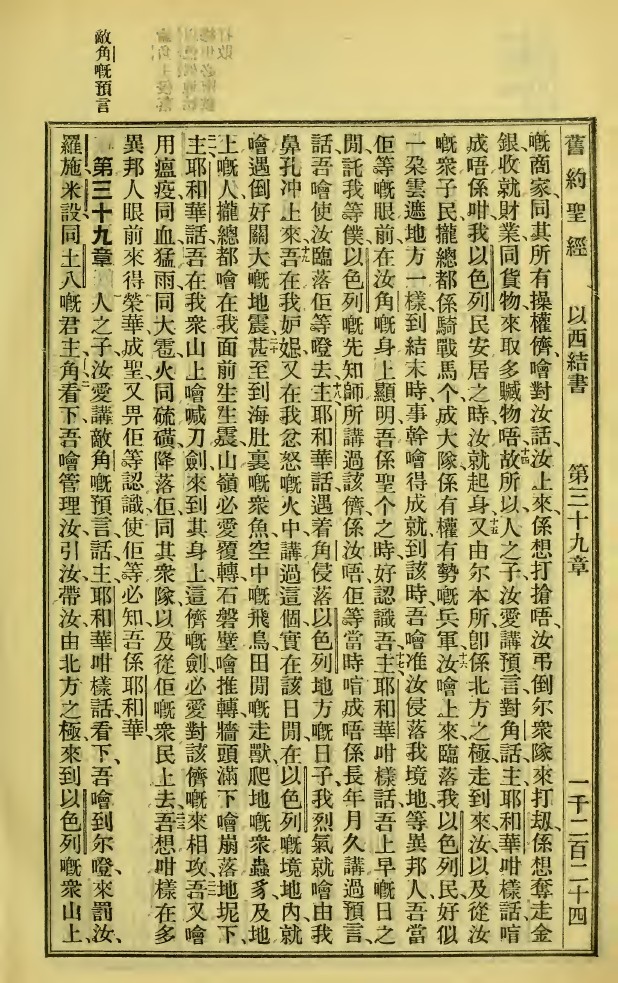 舊約聖經 以西結書 第三十九章 一千二百二十四
嘅商家、同其所有操權儕、噲對汝話、汝上來、係想打搶唔、汝弔倒尔衆隊來打刼、係想奪走金
銀、收就財業同貨物、來取多贓物唔、十四故所以人之子、汝愛講預言對角話、主耶和華咁樣話、喧
成唔係咁、我以色列民安居之時、汝就起身、十五又由尔本所、卽係北方之極走到來、汝以及從汝
嘅衆子民、攏總都係騎戰馬个、成大隊、係有權有勢嘅兵軍、十六汝噲上來臨落我以色列民、好似
一朶雲遮地方一樣、到結末時、事幹噲得成就、到該時吾噲准汝侵落我境地、等異邦人、吾當
佢等嘅眼前、在汝角嘅身上、顯明吾係聖个之時、好認識吾、十七主耶和華咁樣話、吾上早嘅日之
閒、託我等僕、以色列嘅先知師、所講過該儕、係汝唔、佢等當時喧成唔係長年月久講過預言、
話吾噲使汝臨落佢等噔去、十八主耶和華話、遇着角侵落以色列地方嘅日子、我烈氣就噲由我
鼻孔冲上來、十九吾在我妒𢜤、又在我忿怒嘅火中講過、這個實在該日閒、在以色列嘅境地內、就
噲遇倒好關大嘅地震、二十甚至到海肚裏嘅衆魚、空中嘅飛鳥、田閒嘅走獸、爬地嘅衆蟲豸、及地
上嘅人、攏總都噲在我面前生生震、山嶺必愛覆轉、石磐壁噲推轉、牆頭滿下噲崩落地坭下、
主耶和華話、吾在我衆山上、噲喊刀劍來到其身上、這儕嘅劍、必愛對該儕嘅來相攻、吾又噲
用瘟疫同血、猛雨同大雹、火同硫磺、降落佢同其衆隊、以及從佢嘅衆民上去、吾想咁樣在多
異邦人眼前、來得榮華、成聖、又畀佢等認識、使佢等必知、吾係耶和華、
第三十九章 人之子、汝愛講敵角嘅預言話、主耶和華咁樣話、看下、吾噲到尔噔來罰汝、
羅施米設同土八嘅君主角、二看下、吾噲管理汝、引汝、帶汝由北方之極、來到以色列嘅衆山上、
敵角嘅預言